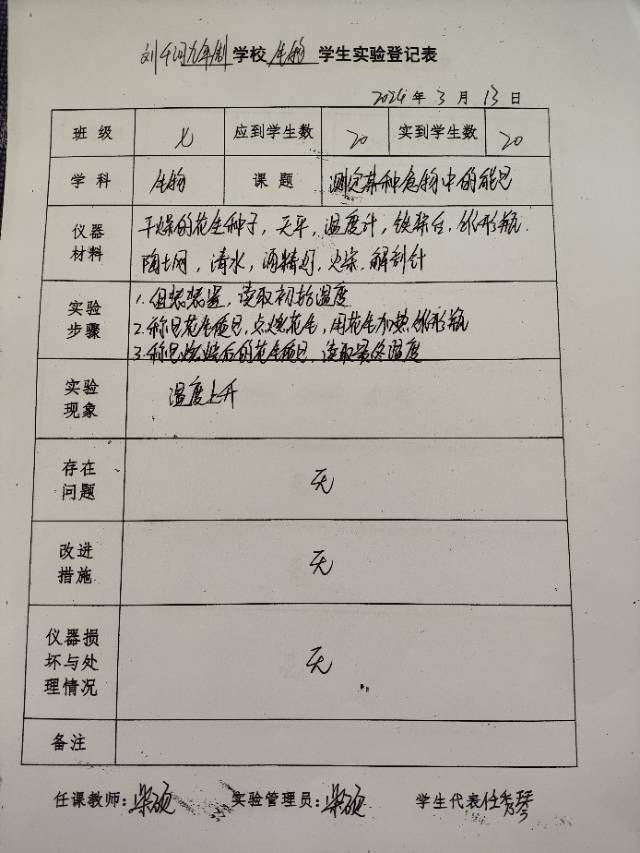 刘千河九年制学校 生物 学生实验登记表
2024年3月13日
班级 七 应到学生数 20 实到学生数 20
学科 生物 课题 测定某种食物中的能量
仪器材料 干燥的花生种子，天平，温度计，铁架台，锥形瓶
陶土网，清水，酒精灯，火柴，解剖针
实验步骤 1.组装装置，读取初始温度
2.称量花生质量，点燃花生，用花生加热锥形瓶
3.称量燃烧后的花生质量，读取最终温度
实验现象 温度上升
存在问题 无
改进措施 无
仪器损坏与处理情况 无
备注
任课教师：梁硕 实验管理员：梁硕 学生代表 任秀琴